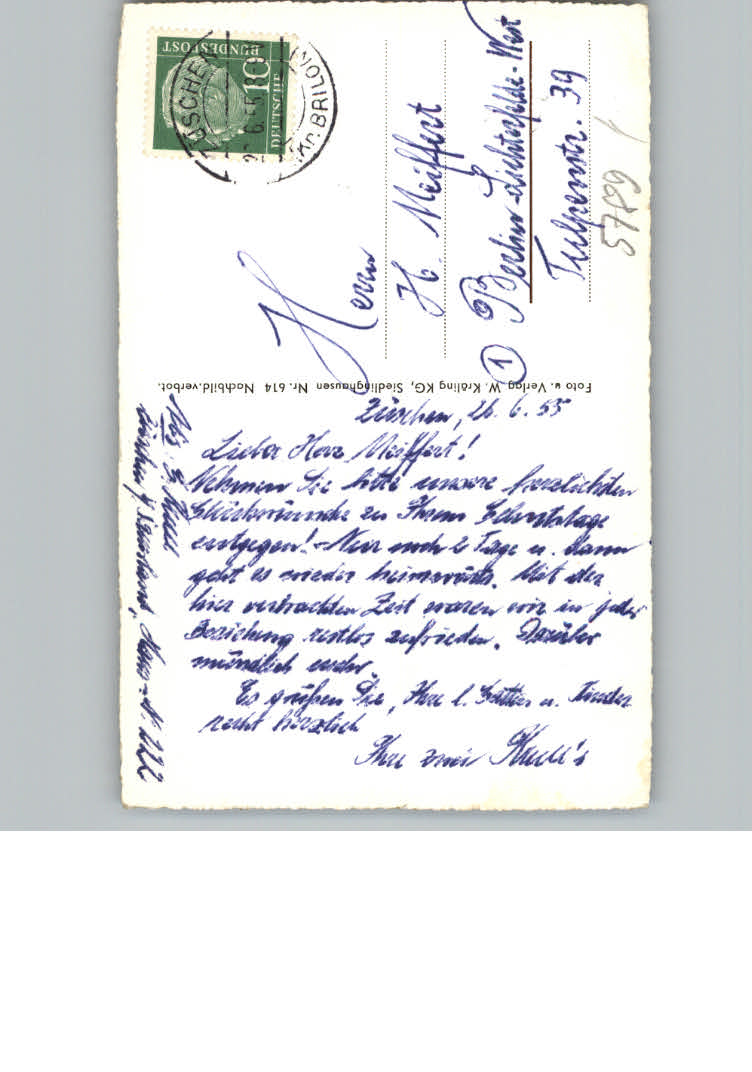 DEUTSCHE
BUNDESPOST
10
ZÜSCHEN
(Kr. BRILON)
6.55
Herrn
H. Meiffert
(1) Berlin-Lichterfelde-West
Tulpenstr. 39
5789
Foto u. Verlag W. Kräling KG, Siedlinghausen Nr. 614 Nachbild. verbot.
Züschen, 26. 6. 55
Lieber Herr Meiffert!
Nehmen Sie bitte unsere herzlichsten
Glückwünsche zu Ihrem Geburtstage
entgegen! - Nur noch 2 Tage u. dann
geht es wieder heimwärts. Mit der
hier verbrachten Zeit waren wir in jeder
Beziehung restlos zufrieden. Darüber
mündlich mehr.
Es grüßen Sie, Ihre l. Gattin u. Kinder
recht herzlich
Ihre zwei
Abs.
Züschen / Sauerland, Haus-Nr. 122